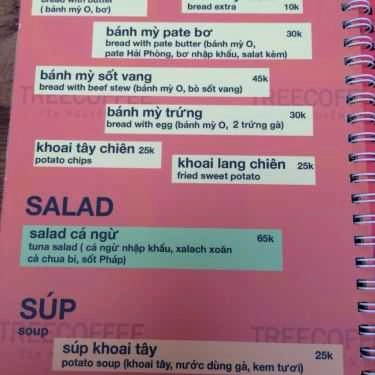 bread with butter
(bánh mỳ O, bơ)
bread extra 10k
bánh mỳ pate bơ 30k
bread with pate butter (bánh mỳ O,
pate Hải Phòng, bơ nhập khẩu, salat kèm)
bánh mỳ sốt vang 45k
bread with beef stew (bánh mỳ O, bò sốt vang)
TREECOFFEE
bánh mỳ trứng 30k
bread with egg (bánh mỳ O, 2 trứng gà)
khoai tây chiên 25k
potato chips
khoai lang chiên 25k
fried sweet potato
SALAD
salad cá ngừ 65k
tuna salad ( cá ngừ nhập khẩu, xalach xoăn
cà chua bi, sốt Pháp)
SÚP
soup
TREECOFFEE
TREECOFFEE
súp khoai tây 25k
potato soup (khoai tây, nước dùng gà, kem tươi)